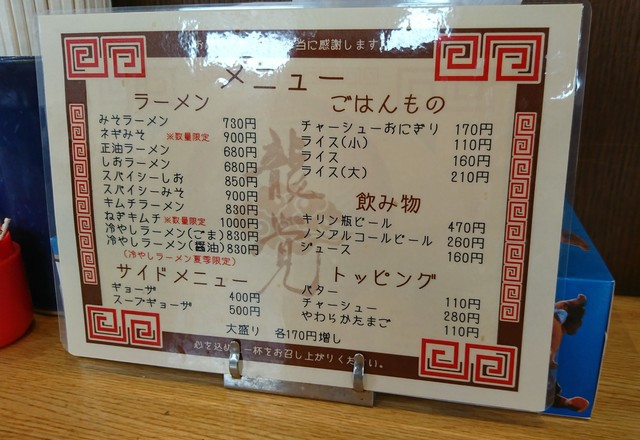 当に感謝します
メニュー
ラーメン
みそラーメン 730円
ネギみそ ※数量限定 900円
正油ラーメン 680円
しおラーメン 680円
スパイシーしお 850円
スパイシーみそ 900円
キムチラーメン 830円
ねぎキムチ ※数量限定 1000円
冷やしラーメン(ごま) 830円
冷やしラーメン(醤油) 830円
(冷やしラーメン夏季限定)
サイドメニュー
ギョーザ 400円
スープギョーザ 500円
ごはんもの
チャーシューおにぎり 170円
ライス(小) 110円
ライス 160円
ライス(大) 210円
飲み物
キリン瓶ビール 470円
ノンアルコールビール 260円
ジュース 160円
トッピング
バター 110円
チャーシュー 280円
やわらかたまご 110円
大盛り 各170円増し
心を込め 一杯をお召し上がりください。
龍覚